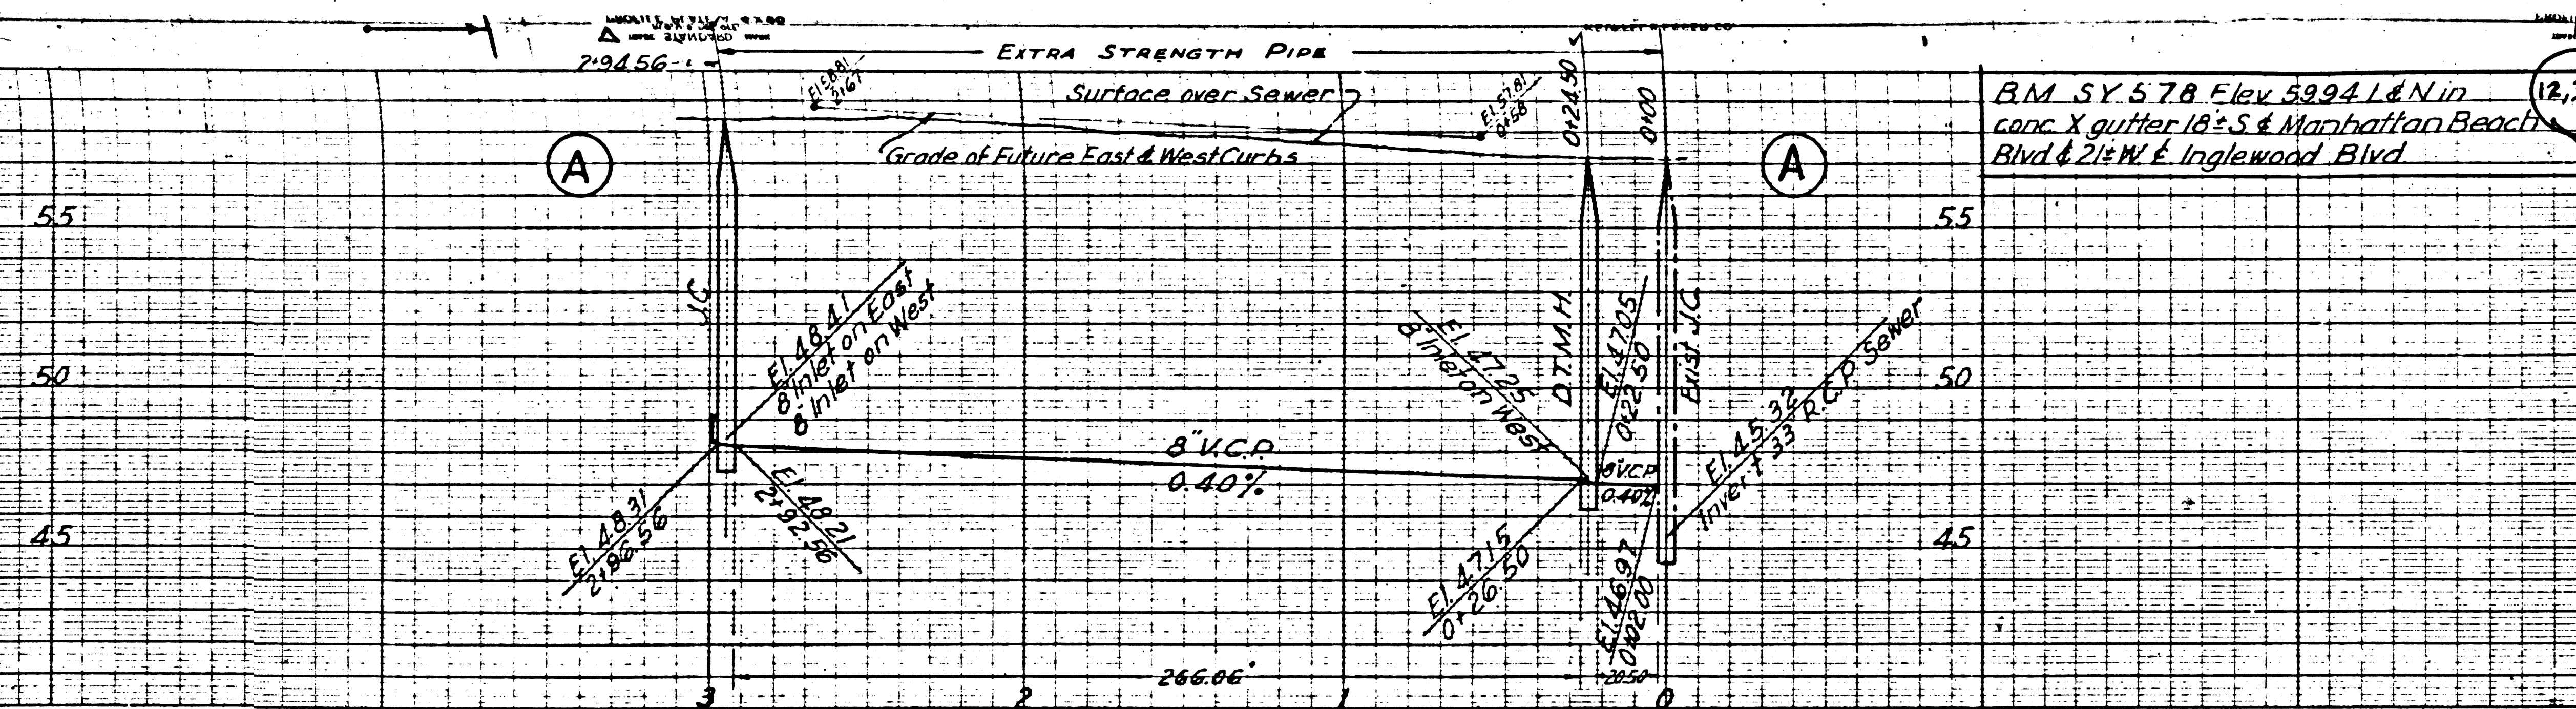 EXTRA STRENGTH PIPE
2+94.56
El. 58.81
2+67
Surface over Sewer
El. 57.81
0+58
0+24.50
0+00
Grade of Future East & West Curbs
A
A
B.M. SY 578 Elev 59.94 L & N in
conc X gutter 18±S ₵ Manhattan Beach
Blvd & 21±W ₵ Inglewood Blvd
12,
55
55
50
50
45
45
J.C.
El. 48.41
8" Inlet on East
8" Inlet on West
El. 48.31
2+96.56
El. 48.21
2+92.56
8" V.C.P.
0.40%
El. 47.25
8" Inlet on West
D.T.M.H.
El. 47.05
0+22.50
Exist. J.C.
8" V.C.P.
0.40%
El. 45.32
Invert 33" R.C.P. Sewer
El. 47.15
0+26.50
El. 46.97
0+02.00
266.06'
20.50
3
2
1
0